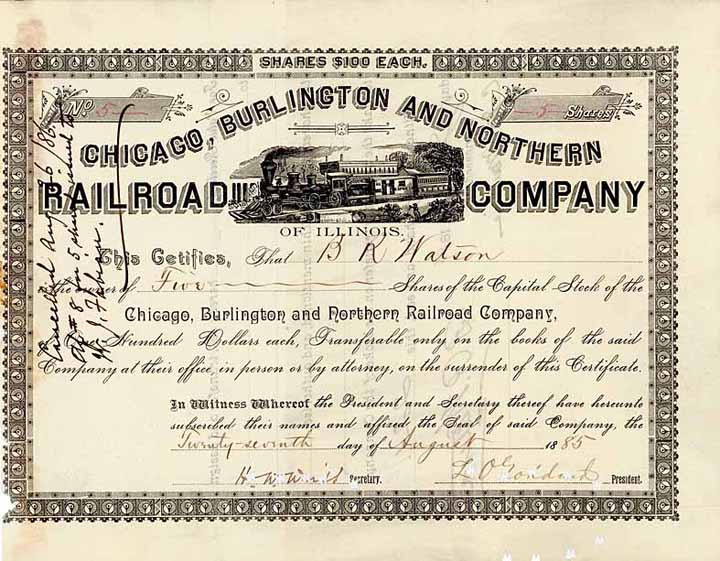 SHARES $100 EACH.
No 5
5 Shares
CHICAGO, BURLINGTON AND NORTHERN
RAILROAD COMPANY
OF ILLINOIS.
This Cetifies, That B K Watson
the owner of Five Shares of the Capital Stock of the
Chicago, Burlington and Northern Railroad Company,
Hundred Dollars each, Transferable only on the books of the said
Company at their office, in person or by attorney, on the surrender of this Certificate.
In Witness Whereof the President and Secretary thereof have hereunto
subscribed their names and affixed the Seal of said Company, the
Twenty-seventh day of August 1885
Secretary.
President.
Cancelled Aug 26/86